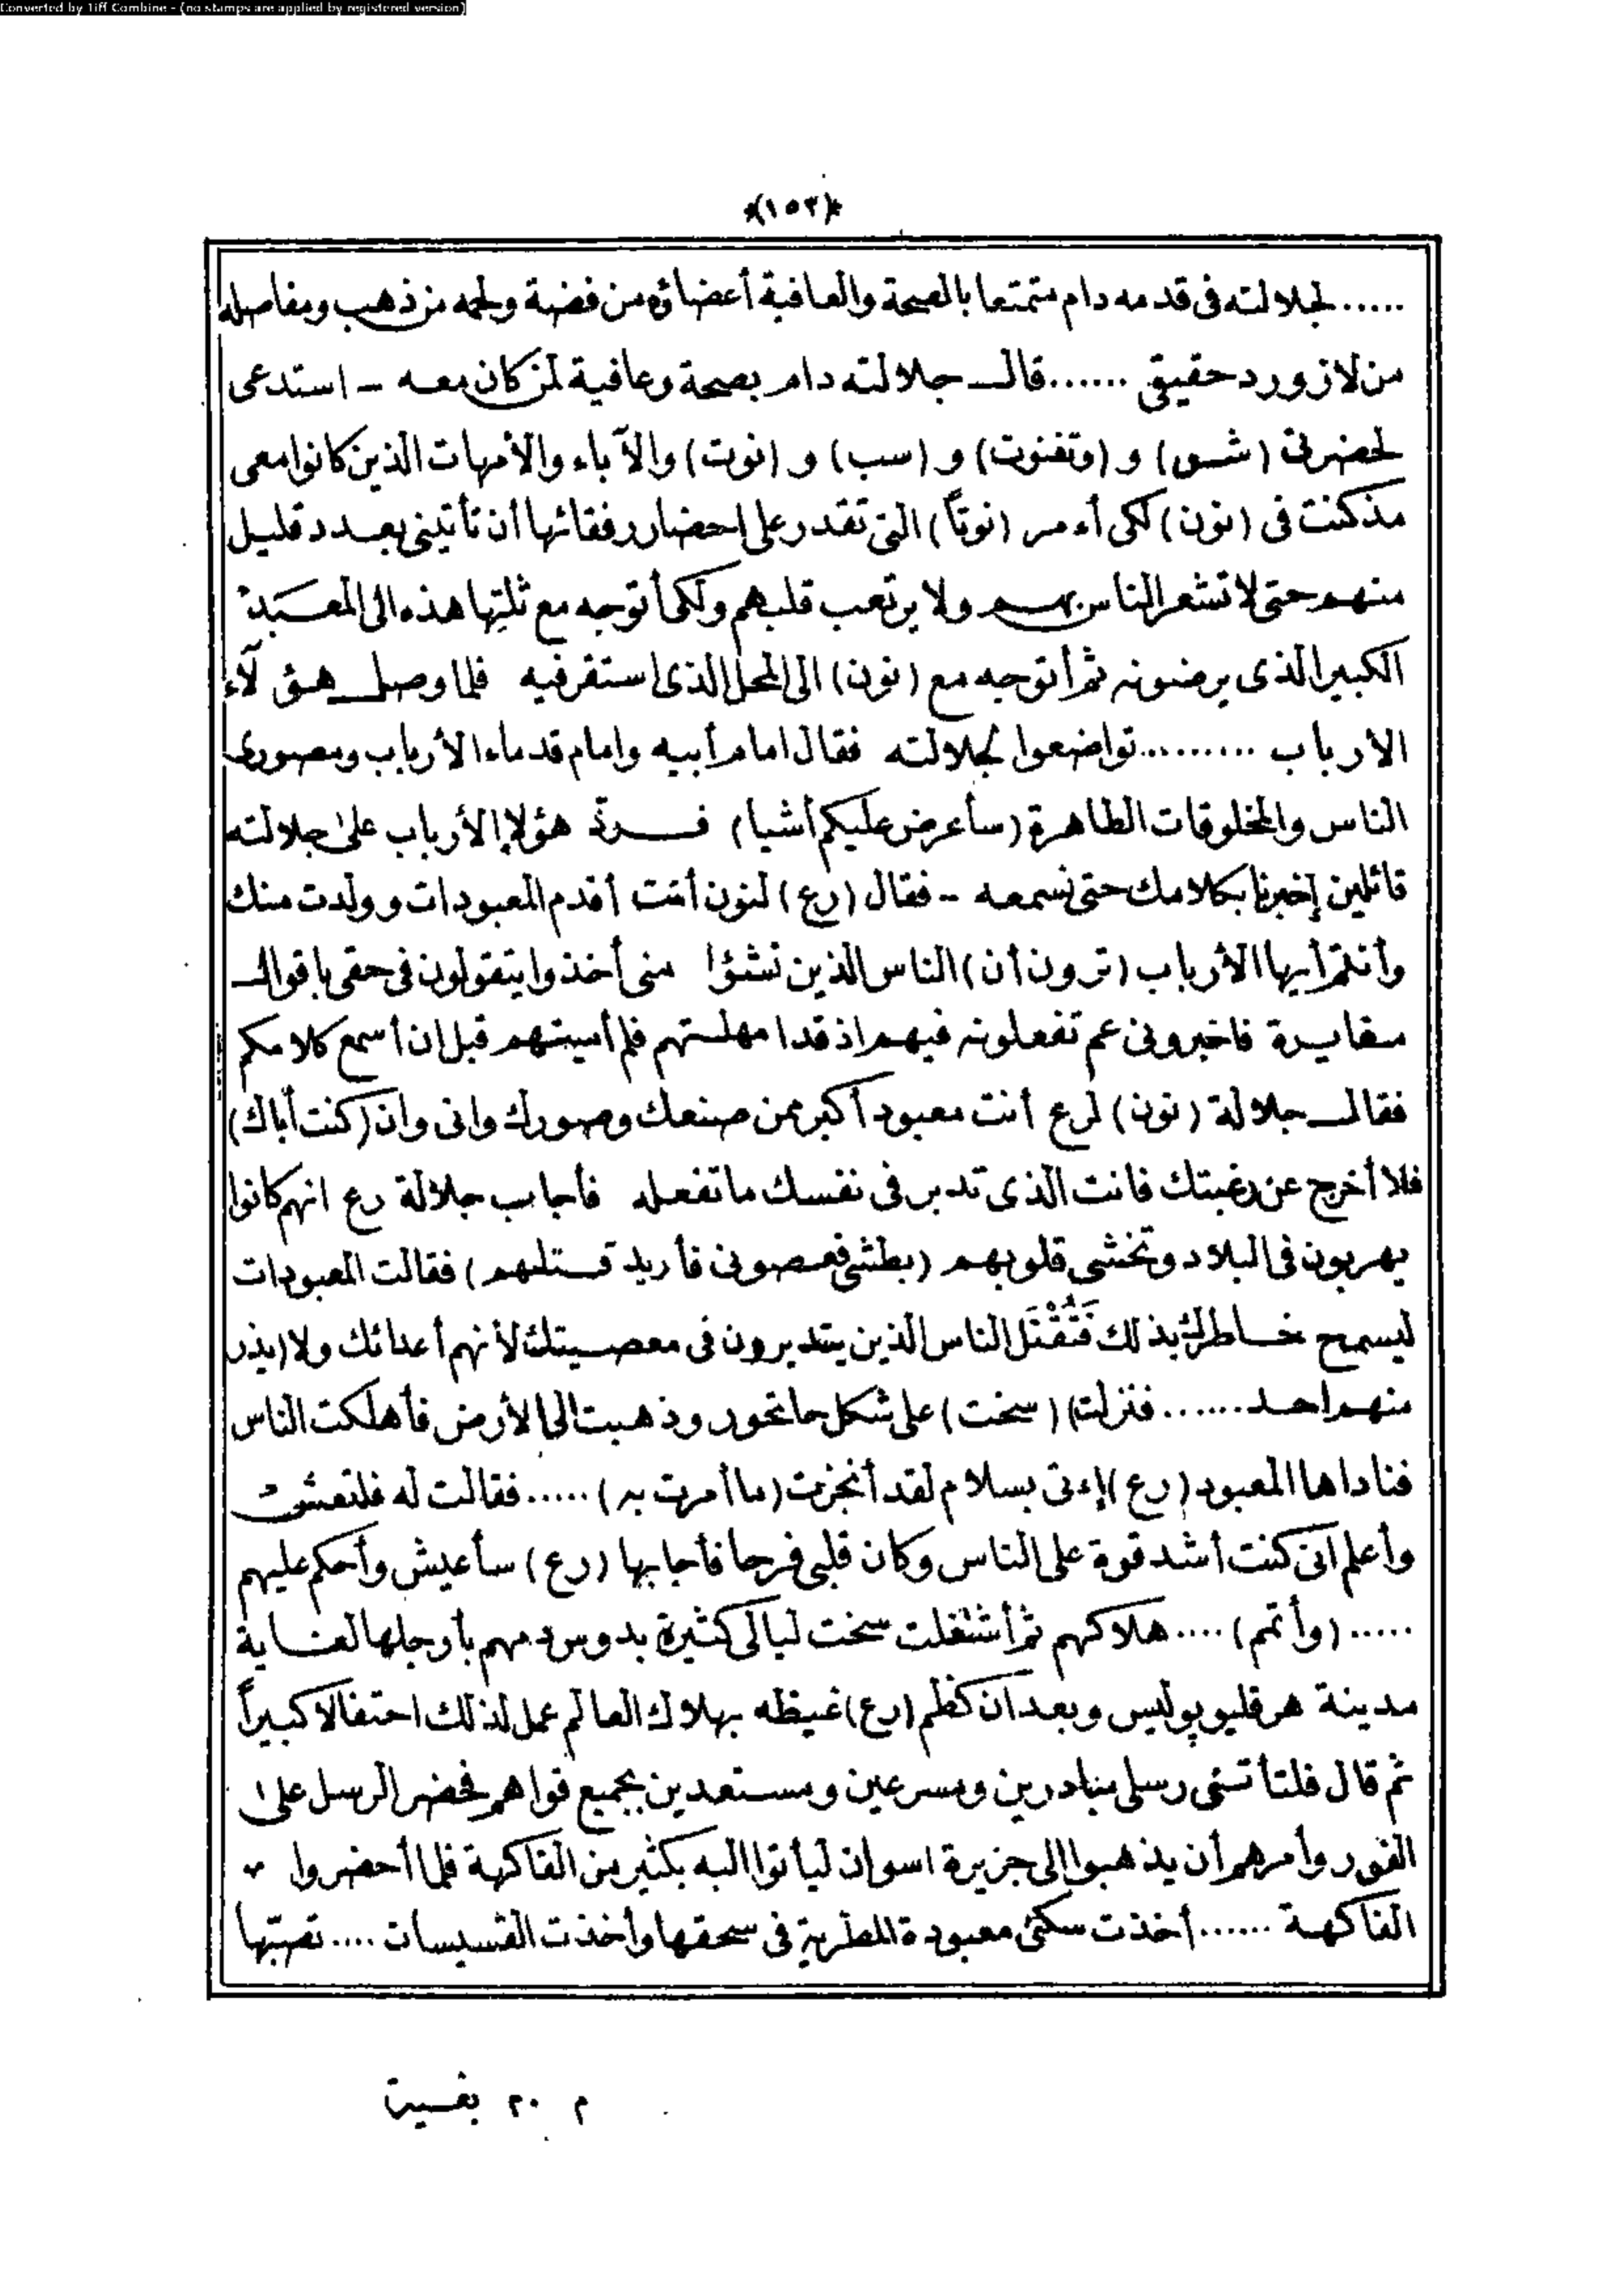 Converted by Tiff Combine - (no stamps are applied by registered version)
*(١٥٣)*
...... لجلالته فى قدمه دام متمتعا بالصحة والعافية أعضاؤه من فضة ولحمه من ذهب ومفاصله
من لازورد حقيقى ...... قال جلالته دام بصحة وعافية لمن كان معه - استدعى
لحضرتى (شو) و (وتفنوت) و (سب) و (نوت) والآباء والأمهات الذين كانوا معى
مذكنت فى (نون) لكى أءمر (نوتاً) التى تقدر على احضار رفقائها أن تأتينى بعدد قليل
منهم حتى لا تشعر الناس بهم ولا يرتعب قلبهم ولكى أتوجه مع ثلتها هذه الى المعبد
الكبير الذى يرضونه ثم أتوجه مع (نون) الى المحل الذى استقرفيه فلما وصل هؤلآء
الارباب .......... تواضعوا لجلالته فقال امام أبيه وامام قدماء الأرباب ومصورى
الناس والمخلوقات الطاهرة (سأعرض عليكم أشيا) فردّ هؤلاء الأرباب على جلالته
قائلين إخبرنا بكلامك حتى نسمعه - فقال (رع) لنون أنت أقدم المعبودات وولدت منك
وأنتم أيها الأرباب (ترون أن) الناس الذين نشؤا منى أخذوا يتقولون فى حقى باقوال
مغايرة فاخبرونى عم تفعلونه فيهم اذ قدا مهلتهم فلم أسيتهم قبل ان أسمع كلامكم
فقال جلالة (نون) لرع أنت معبود أكبر ممن صنعك وصورك وانى وان (كنت أباك)
فلا أخرج عن رغبتك فانت الذى تدبر فى نفسك ما تفعله فأجاب جلالة رع انهم كانوا
يهربون فى البلاد وتخشى قلوبهم (بطشى فعصونى فأريد قتلهم) فقالت المعبودات
ليسمح خاطرك بذلك فَتُقْتَل الناس الذين يتدبرون فى معصيتك لأنهم أعدائك ولا (يذر
منهم احد ...... فنزلت) (سخت) على شكل حاتحور وذهبت الى الأرض فأهلكت الناس
فناداها المعبود (رع) إءتى بسلام لقد أنجزت (ما أمرت به) ..... فقالت له فلتعش
وأعلم انى كنت أشد قوة على الناس وكان قلبى فرحا فأجابها (رع) سأعيش وأحكم عليهم
..... (وأتمم) .... هلاكهم ثم أشتغلت سخت ليالى كثيرة بدوس دمهم بأرجلها لغاية
مدينة هرقليو پوليس وبعد ان كظم (رع) غيظه بهلاك العالم عمل لذلك احتفالا كبيراً
ثم قال فلتأتنى رسلى مبادرين ومسرعين ومستعدين بجميع قواهم فحضر الرسل على
الفور وأمرهم أن يذهبوا الى جزيرة اسوان ليأتوا اليه بكثير من الفاكهة فلما أحضروا
الفاكهة ...... أخذت سكتى معبودة المطرية فى سحقها وأخذت القسيسات .... تصبّها
م ٢٠ بغسيت